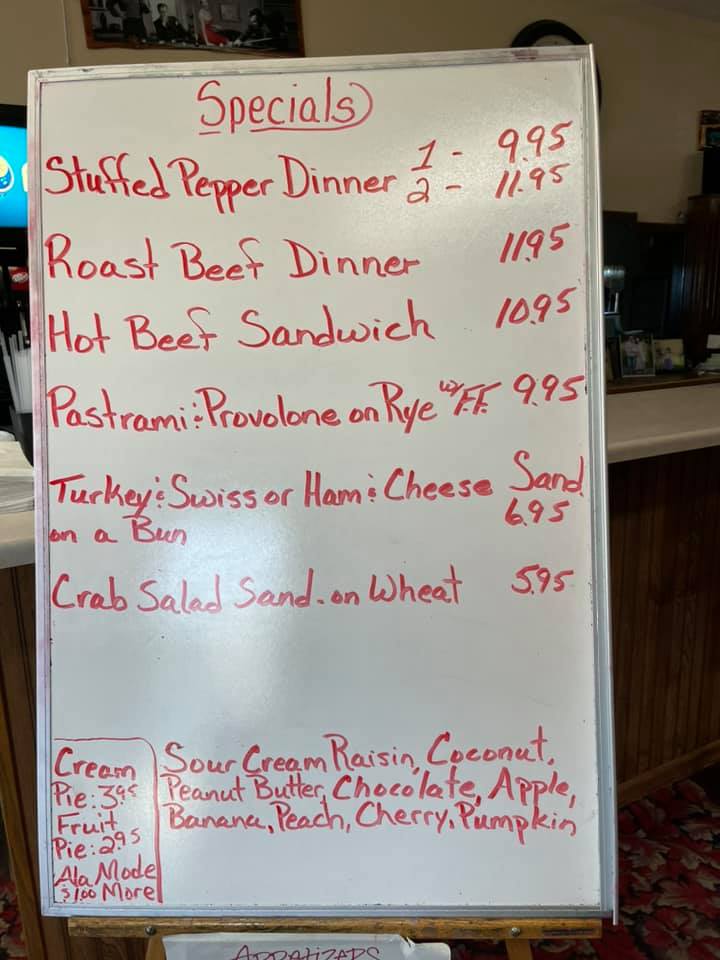 Specials
Stuffed Pepper Dinner 1 - 9.95
2 - 11.95
Roast Beef Dinner 11.95
Hot Beef Sandwich 10.95
Pastrami & Provolone on Rye w/ F.F. 9.95
Turkey & Swiss or Ham & Cheese Sand
on a Bun 6.95
Crab Salad Sand. on Wheat 5.95
Cream
Pie: 3.95
Fruit
Pie: 2.95
Ala Mode
$1.00 More
Sour Cream Raisin, Coconut,
Peanut Butter, Chocolate, Apple,
Banana, Peach, Cherry, Pumpkin